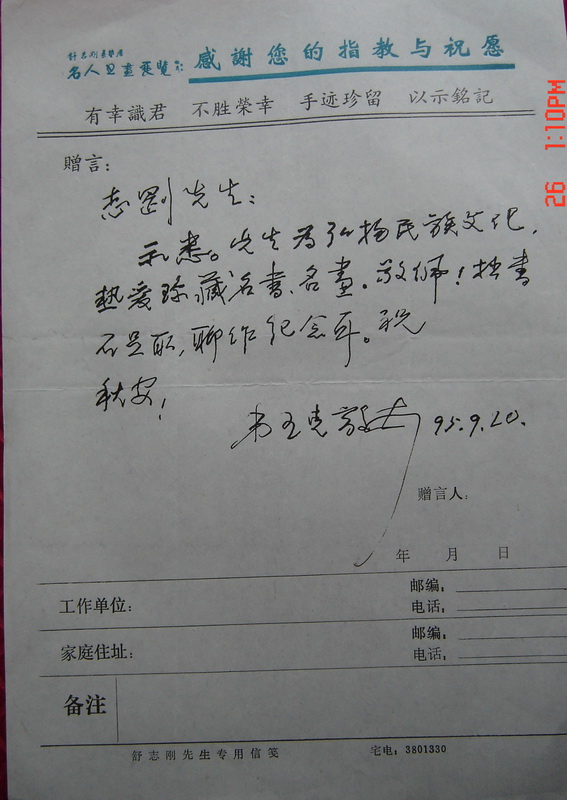 舒志刚
名人书画展览
感謝您的指教与祝愿
有幸識君 不胜榮幸 手迹珍留 以示銘記
赠言：
志刚先生：
示悉。先生为弘扬民族文化，
热爱珍藏名书、名畫。敬佩！拙書
不足取，聊作纪念耳。祝
秋安！
弟王 敬上 95.9.20.
赠言人：
年 月 日
工作单位： 邮编：
电话：
家庭住址： 邮编：
电话：
备注
舒志刚先生专用信笺 宅电：3801330
26 1:10PM